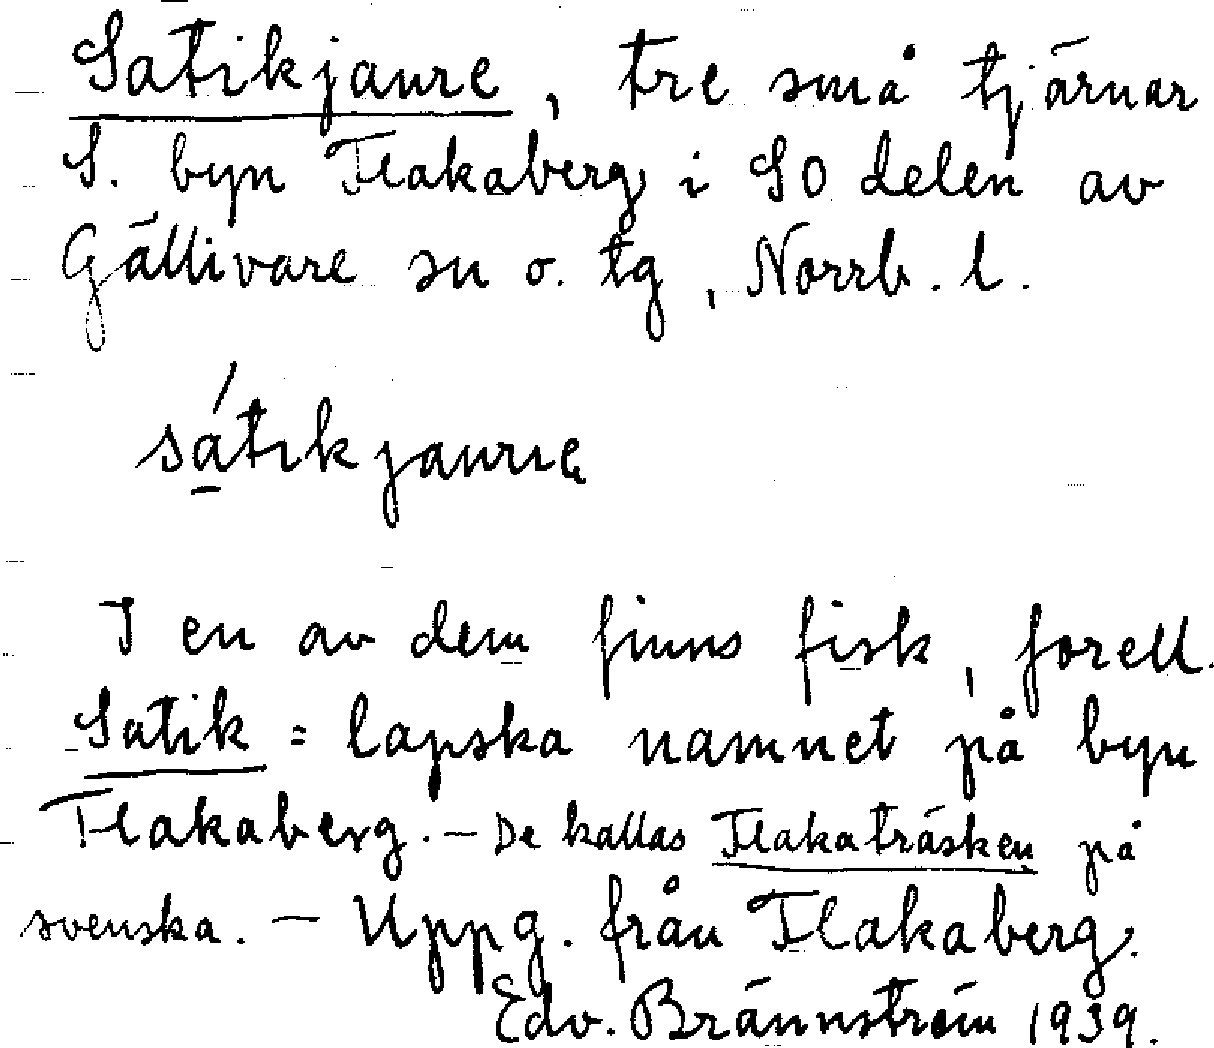 Satikjaure, tre små tjärnar
S. byn Flakaberg i SO delen av
Gällivare sn o. tg, Norrb. l.
sá̱tikjaurıe
I en av dem finns fisk, forell.
Satik = lapska namnet på byn
Flakaberg. — De kallas Flakaträsken på
svenska. — Uppg. från Flakaberg.
Edv. Brännström 1939.